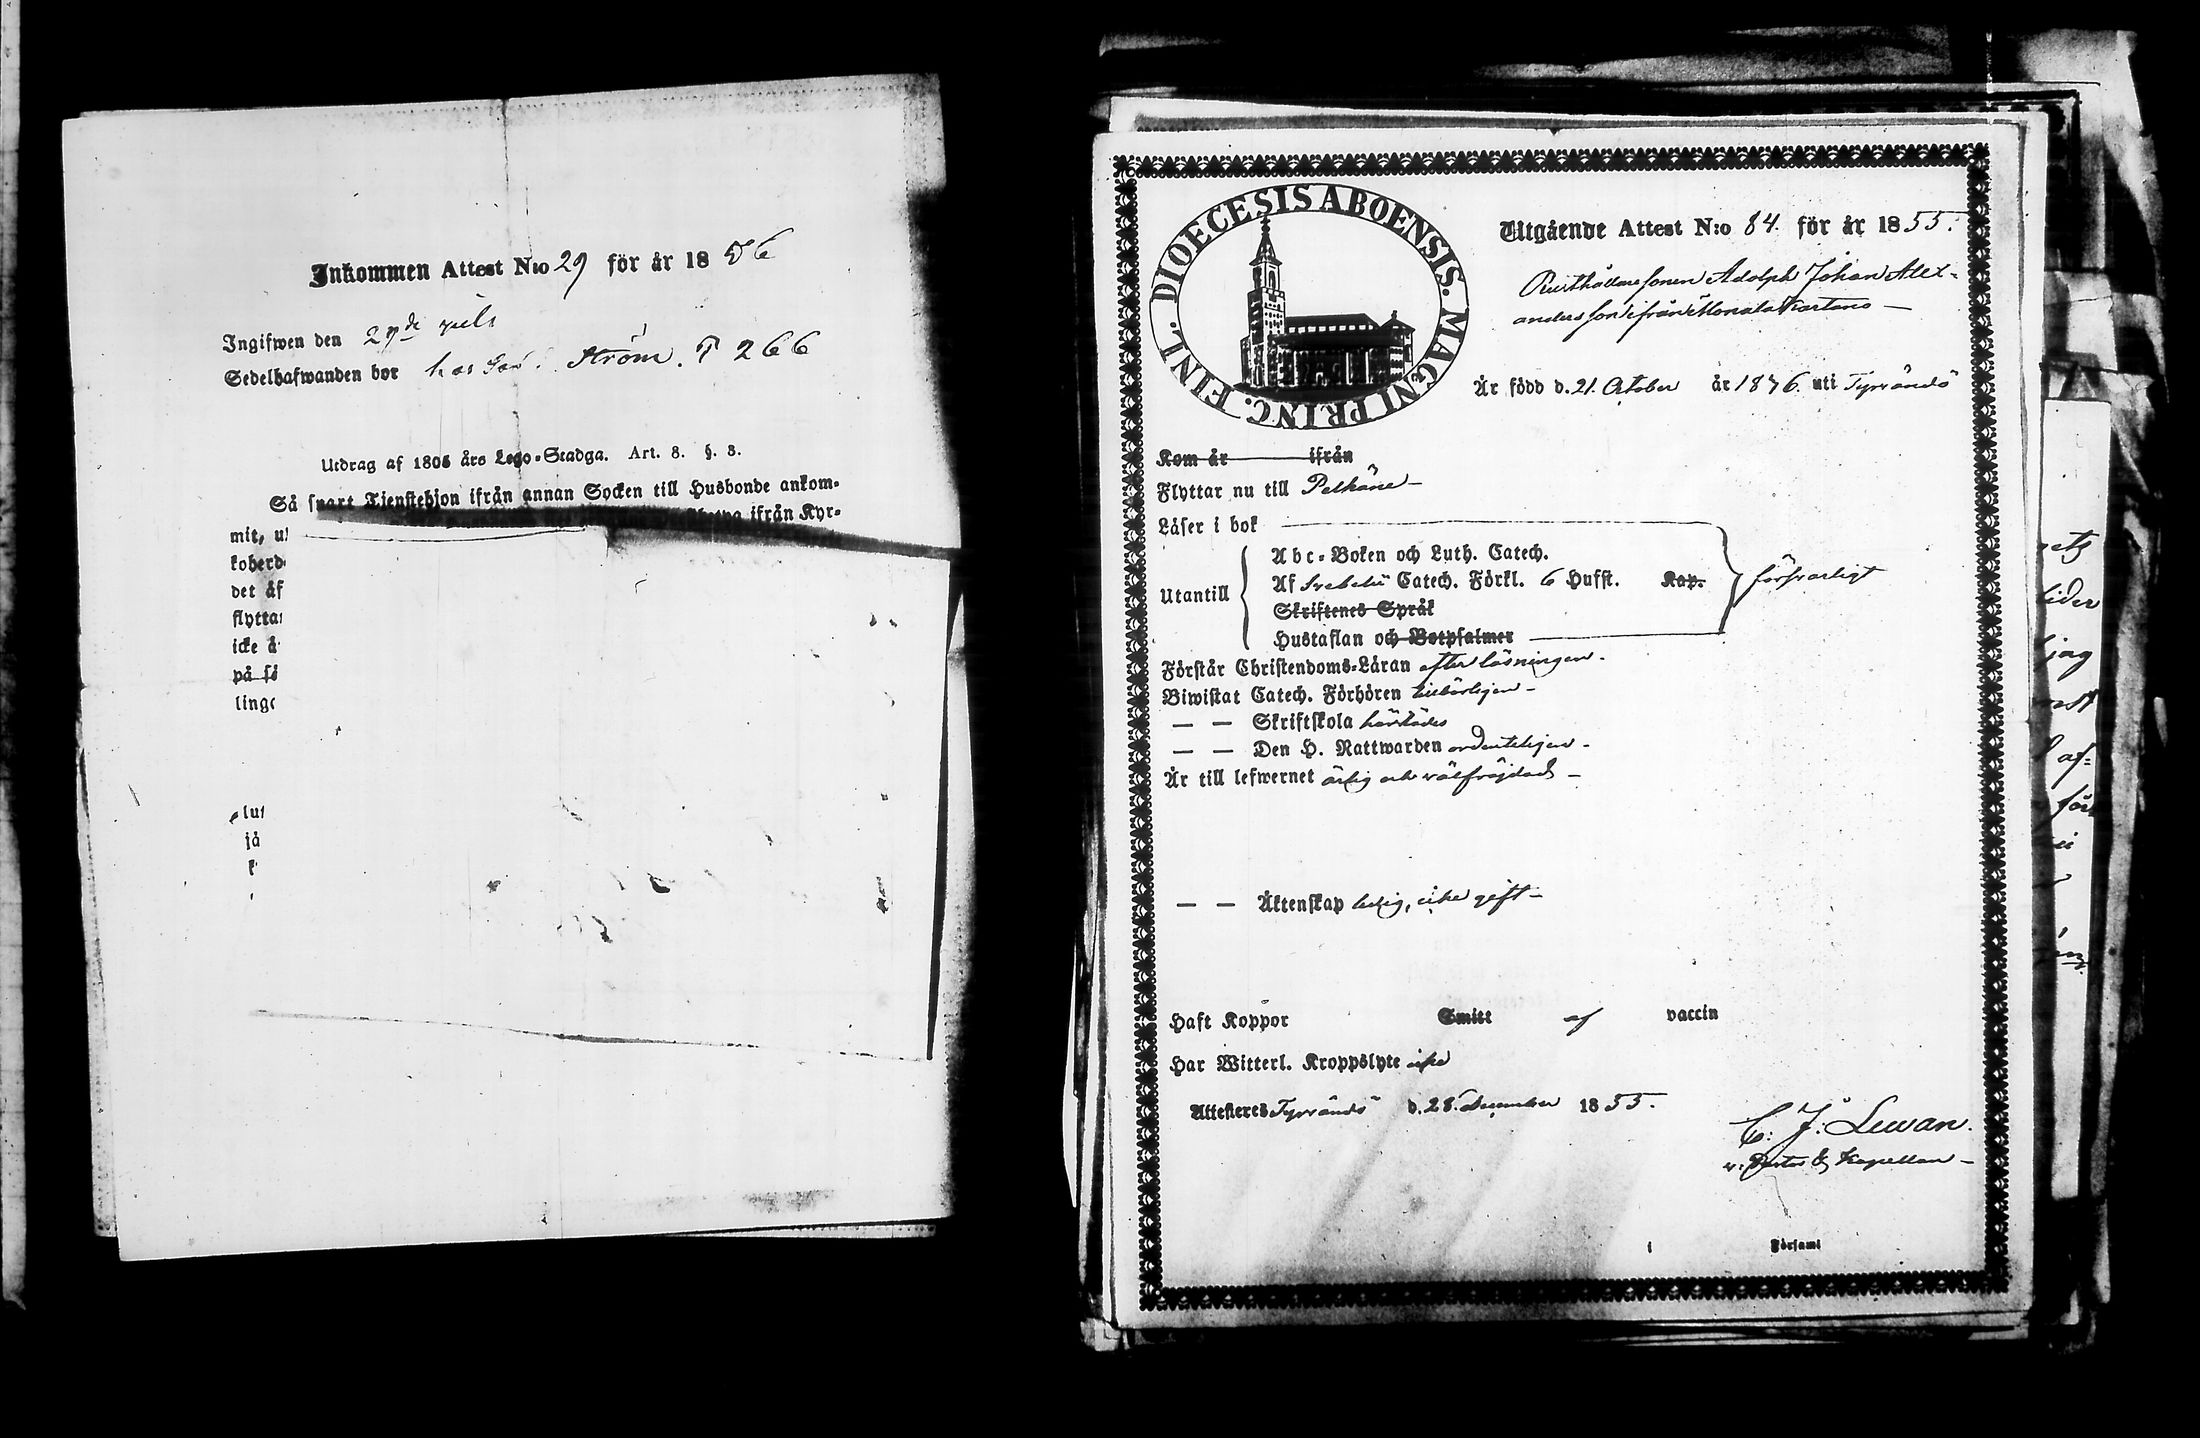 Inkommen Attest N:o 29 för år 1856
Ingifwen den 29de
Sedelhafwanden bor hos Ström. T 266
Utdrag af 1805 års Lego-Stadga. Art. 8. §. 3.
Så snart Tjenstehjon ifrån annan Socken till Husbonde ankom-
ifrån Kyr-
mit, u
koherd
det åf
flytta
icke å
på sä
ling
lut
jä
DIOECESIS ABOENSIS. MAGNI PRINC. FINL.
Utgående Attest N:o 84. för år 1855.
Rusthållaresonen Adolph Johan Alex-
andersson ifrån Kartano
Är född d. 21. October år 1836. uti Tyrvändö
Kom år ifrån
Flyttar nu till Pelkäne
Läser i bok
Utantill
Abc-Boken och Luth. Catech.
Af Svebelii Catech. Förkl. 6 Hufst. Kap.
Skriftenes Språk
Hustaflan och Botpsalmer
försvarligt
Förstår Christendoms-Läran efter läsningen.
Biwistat Catech. Förhören
— — Skriftskola
— — Den H. Nattwarden ordenteligen
Är till lefwernet ärlig och välfräjdad
— — Äktenskap ledig, icke gift
Haft Koppor Smitt af vaccin
Har Witterl. Kroppslyte icke
Attesteres Tyrvändö d. 28. December 1855.
C. J. Lewan.
v: Pastor & Kapellan
i Församl